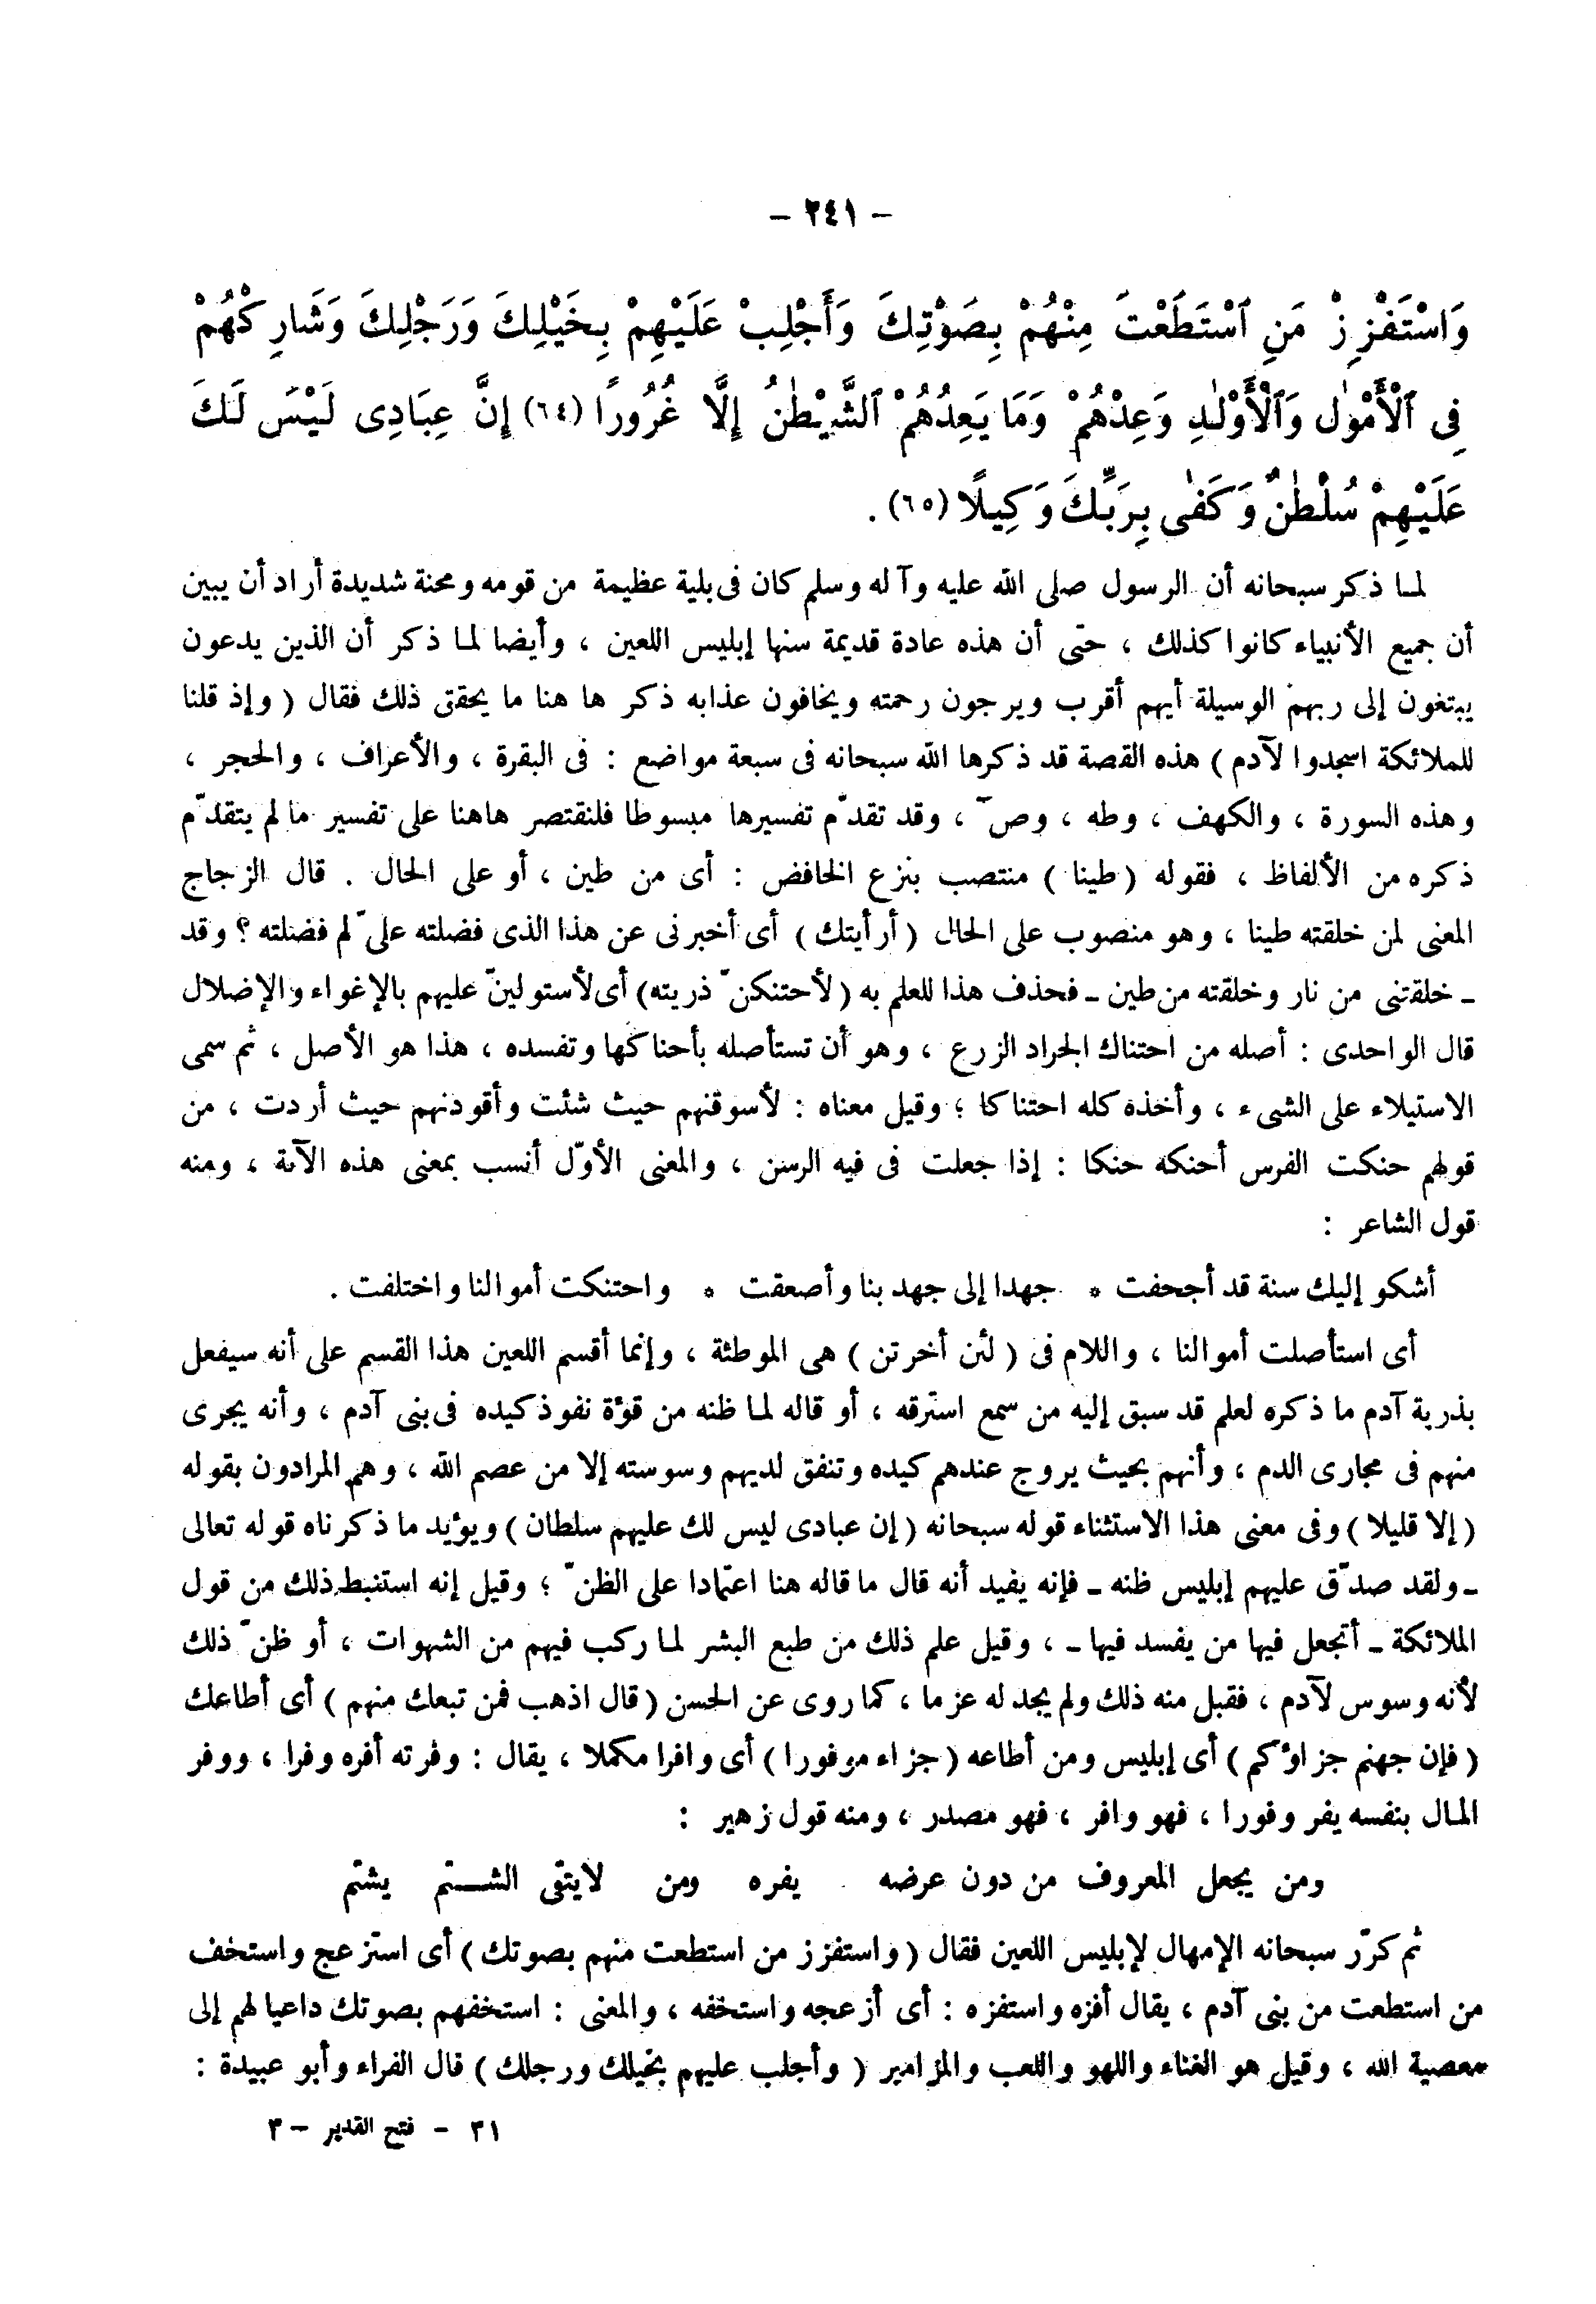 - ٢٤١ -
وَاسْتَفْزِزْ مَنِ ٱسْتَطَعْتَ مِنْهُمْ بِصَوْتِكَ وَأَجْلِبْ عَلَيْهِمْ بِخَيْلِكَ وَرَجْلِكَ وَشَارِكْهُمْ
فِى ٱلْأَمْوٰلِ وَٱلْأَوْلٰدِ وَعِدْهُمْ وَمَا يَعِدُهُمْ ٱلشَّيْطٰنُ إِلَّا غُرُورًا (٦٤) إِنَّ عِبَادِى لَيْسَ لَكَ
عَلَيْهِمْ سُلْطٰنٌ وَكَفٰى بِرَبِّكَ وَكِيلًا (٦٥) .
لما ذكر سبحانه أن الرسول صلى الله عليه وآله وسلم كان فى بلية عظيمة من قومه ومحنة شديدة أراد أن يبين
أن جميع الأنبياء كانوا كذلك ، حتى أن هذه عادة قديمة سنها إبليس اللعين ، وأيضا لما ذكر أن الذين يدعون
يبتغون إلى ربهم الوسيلة أيهم أقرب ويرجون رحمته ويخافون عذابه ذكر ها هنا ما يحقق ذلك فقال ( وإذ قلنا
للملائكة اسجدوا لآدم ) هذه القصة قد ذكرها الله سبحانه فى سبعة مواضع : فى البقرة ، والأعراف ، والحجر ،
وهذه السورة ، والكهف ، وطه ، وصۤ ، وقد تقدّم تفسيرها مبسوطا فلنقتصر هاهنا على تفسير ما لم يتقدّم
ذكره من الألفاظ ، فقوله ( طينا ) منتصب بنزع الخافض : أى من طين ، أو على الحال . قال الزجاج
المعنى لمن خلقته طينا ، وهو منصوب على الحال ( أرأيتك ) أى أخبرنى عن هذا الذى فضلته علىّ لم فضلته ؟ وقد
ـ خلقتنى من نار وخلقته من طين ـ فحذف هذا للعلم به ( لأحتنكنّ ذريته) أى لأستولينّ عليهم بالإغواء والإضلال
قال الواحدى : أصله من احتناك الجراد الزرع ، وهو أن تستأصله بأحناكها وتفسده ، هذا هو الأصل ، ثم سمى
الاستيلاء على الشىء ، وأخذه كله احتناكا ؛ وقيل معناه : لأسوقنهم حيث شئت وأقودنهم حيث أردت ، من
قولهم حنكت الفرس أحنكه حنكا : إذا جعلت فى فيه الرسن ، والمعنى الأوّل أنسب بمعنى هذه الآية ، ومنه
قول الشاعر :
أشكو إليك سنة قد أجحفت * جهدا إلى جهد بنا وأضعفت * واحتنكت أموالنا واختلفت .
أى استأصلت أموالنا ، واللام فى ( لئن أخرتن ) هى الموطئة ، وإنما أقسم اللعين هذا القسم على أنه سيفعل
بذرية آدم ما ذكره لعلم قد سبق إليه من سمع استرقه ، أو قاله لما ظنه من قوّة نفوذ كيده فى بنى آدم ، وأنه يجرى
منهم فى مجارى الدم ، وأنهم بحيث يروج عندهم كيده وتنفق لديهم وسوسته إلا من عصم الله ، وهم المرادون بقوله
( إلا قليلا ) وفى معنى هذا الاستثناء قوله سبحانه ( إن عبادى ليس لك عليهم سلطان ) ويؤيد ما ذكرناه قوله تعالى
ـ ولقد صدّق عليهم إبليس ظنه ـ فإنه يفيد أنه قال ما قاله هنا اعتمادا على الظنّ ؛ وقيل إنه استنبط ذلك من قول
الملائكة ـ أتجعل فيها من يفسد فيها ـ ، وقيل علم ذلك من طبع البشر لما ركب فيهم من الشهوات ، أو ظنّ ذلك
لأنه وسوس لآدم ، فقبل منه ذلك ولم يجد له عزما ، كما روى عن الحسن ( قال اذهب فمن تبعك منهم ) أى أطاعك
( فإن جهنم جزاؤكم ) أى إبليس ومن أطاعه ( جزاء موفورا ) أى وافرا مكملا ، يقال : وفرته أفره وفرا ، ووفر
المال بنفسه يفر وفورا ، فهو وافر ، فهو مصدر ، ومنه قول زهير :
ومن يجعل المعروف من دون عرضه يفره ومن لايتّقى الشـــتم يشتم
ثم كرّر سبحانه الإمهال لإبليس اللعين فقال ( واستفزز من استطعت منهم بصوتك ) أى استزعج واستخف
من استطعت من بنى آدم ، يقال أفزه واستفزه : أى أزعجه واستخفه ، والمعنى : استخفهم بصوتك داعيا لهم إلى
معصية الله ، وقيل هو الغناء واللهو واللعب والمزامير ( وأجلب عليهم بخيلك ورجلك ) قال الفراء وأبو عبيدة :
٣١ - فتح القدير - ٣